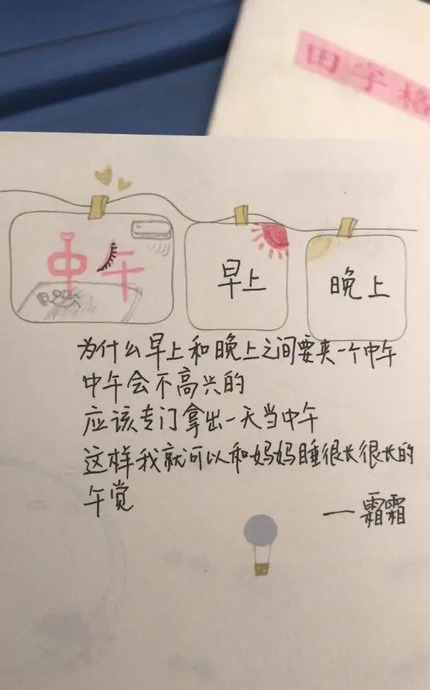 田字格
中午
早上
晚上
为什么早上和晚上之间要夹一个中午
中午会不高兴的
应该专门拿出一天当中午
这样我就可以和妈妈睡很长很长的
午觉
一霜霜